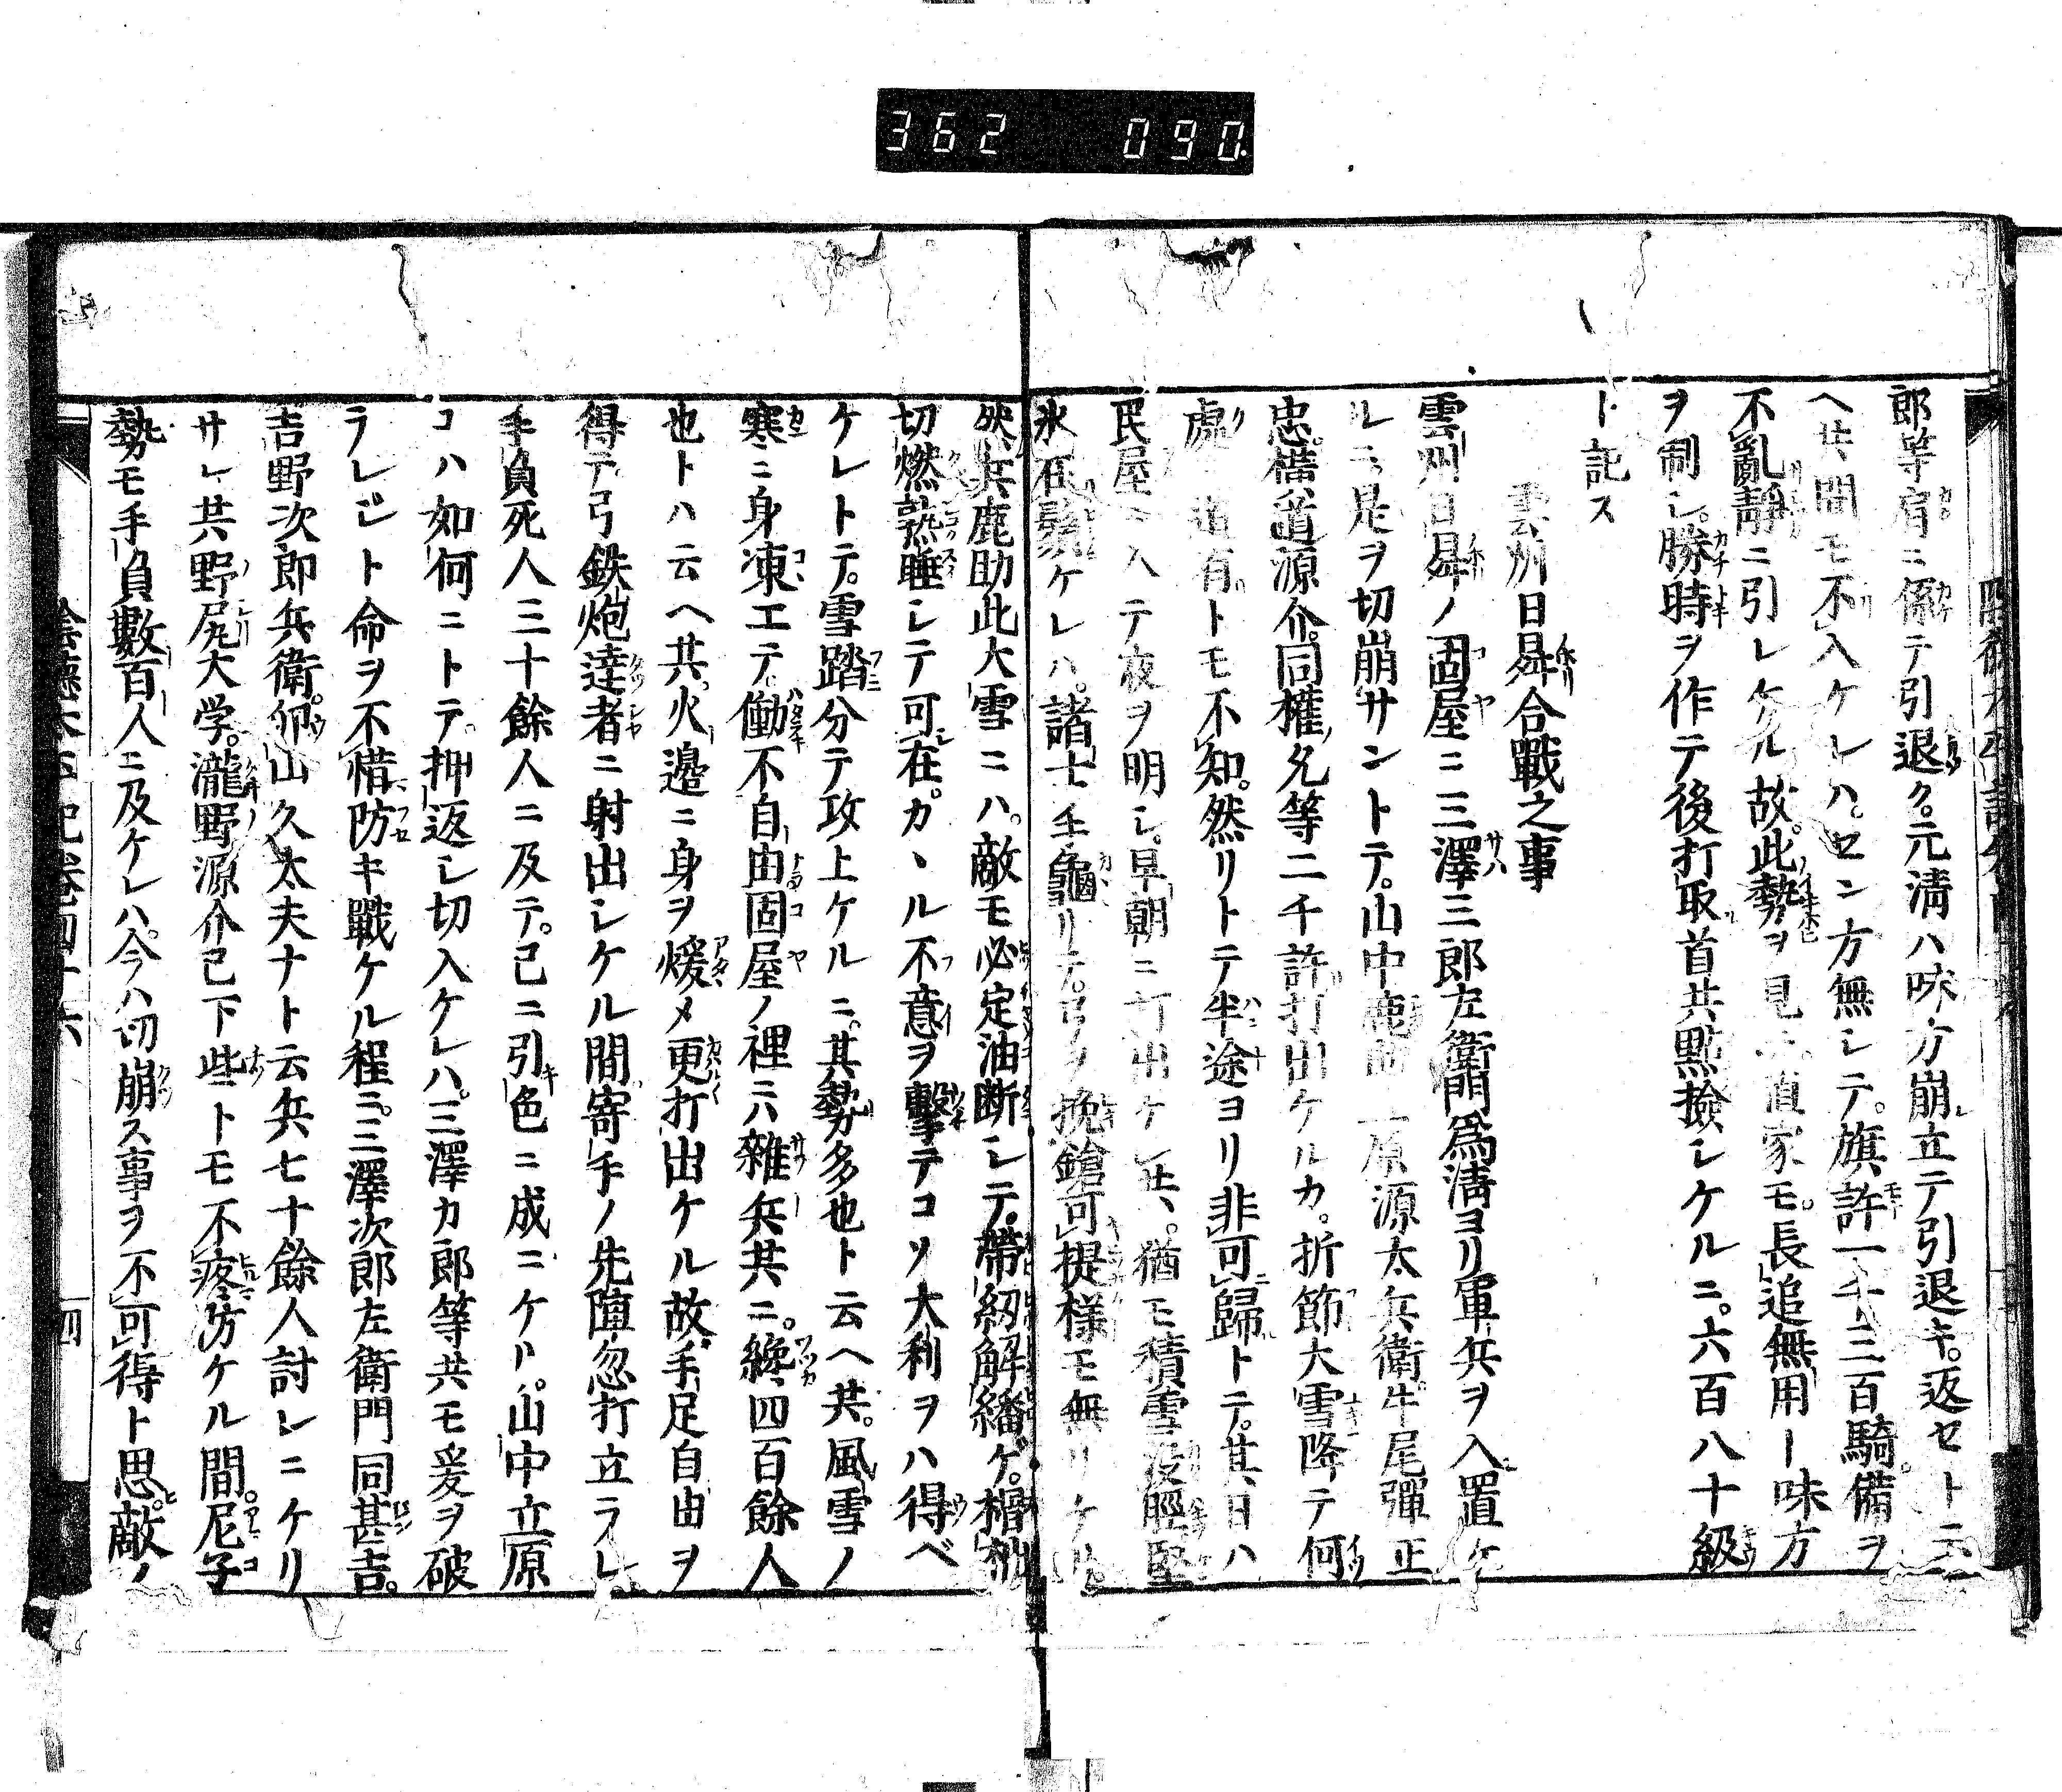 362 090.
郎等肩ニ係テ引退ク。元淸ハ味方崩立テ引退キ。返セト云
ヘ共、聞モ不入ケレハ。セン方無シテ。旗許一千三百騎備ヲ
不亂靜ニ引レケル故。此勢ヲ見テ直家モ。長追無用ト味方
ヲ制シ。勝時ヲ作テ後打取首共點撿シケルニ。六百八十級
ト記ス
雲州日舁合戰之事
雲州日舁ノ固屋ニ三澤三郎左衛門爲淸ヨリ軍兵ヲ入置ケ
ルニ是ヲ切崩サントテ。山中鹿助立原源太兵衛牛尾彈正
忠。横道源介。同權允等二千許打出ケルカ。折節大雪降テ何
處道有トモ不知。然リトテ半途ヨリ非可歸トテ。其日ハ
民屋ニ入テ夜ヲ明シ。早朝ニ打出ケレ共、猶モ積雪沒脛堅
氷在鬚ケレハ。諸士手龜リテ。弓ヲ挽鎗可提様モ無リケル
然、兵鹿助此大雪ニハ。敵モ必定油断シテ。帶紉解繙ゲ。榾柮
切燃熟睡シテ可在。カヽル不意ヲ擊テコソ大利ヲハ得ベ
ケレトテ。雪踏分テ攻上ケルニ。其勢多也ト云ヘ共。風雪ノ
寒ニ身凍エテ。働不自由固屋ノ裡ニハ雜兵共ニ。纔四百餘人
也トハ云ヘ共。火邉ニ身ヲ煖メ更打出ケル故。手足自由ヲ
得テ弓鉄炮達者ニ射出シケル間寄手ノ先陣忽打立ラレ
手負死人三十餘人ニ及テ。已ニ引色ニ成ニケリ。山中立原
コハ如何ニトテ。押返シ切入ケレハ。三澤カ郎等共モ爰ヲ破
ラレジト命ヲ不惜防キ戰ケル程ニ。三澤次郎左衛門同甚吉。
吉野次郎兵衛。卯山久太夫ナト云兵七十餘人討レニケリ
サレ共野尻大学。瀧野源介已下些トモ不疼防ケル間。尼子
勢モ手負數百人ニ及ケレハ。今ハ切崩ス事ヲ不可得ト思。敵ノ
陰德太平記卷四十六 四